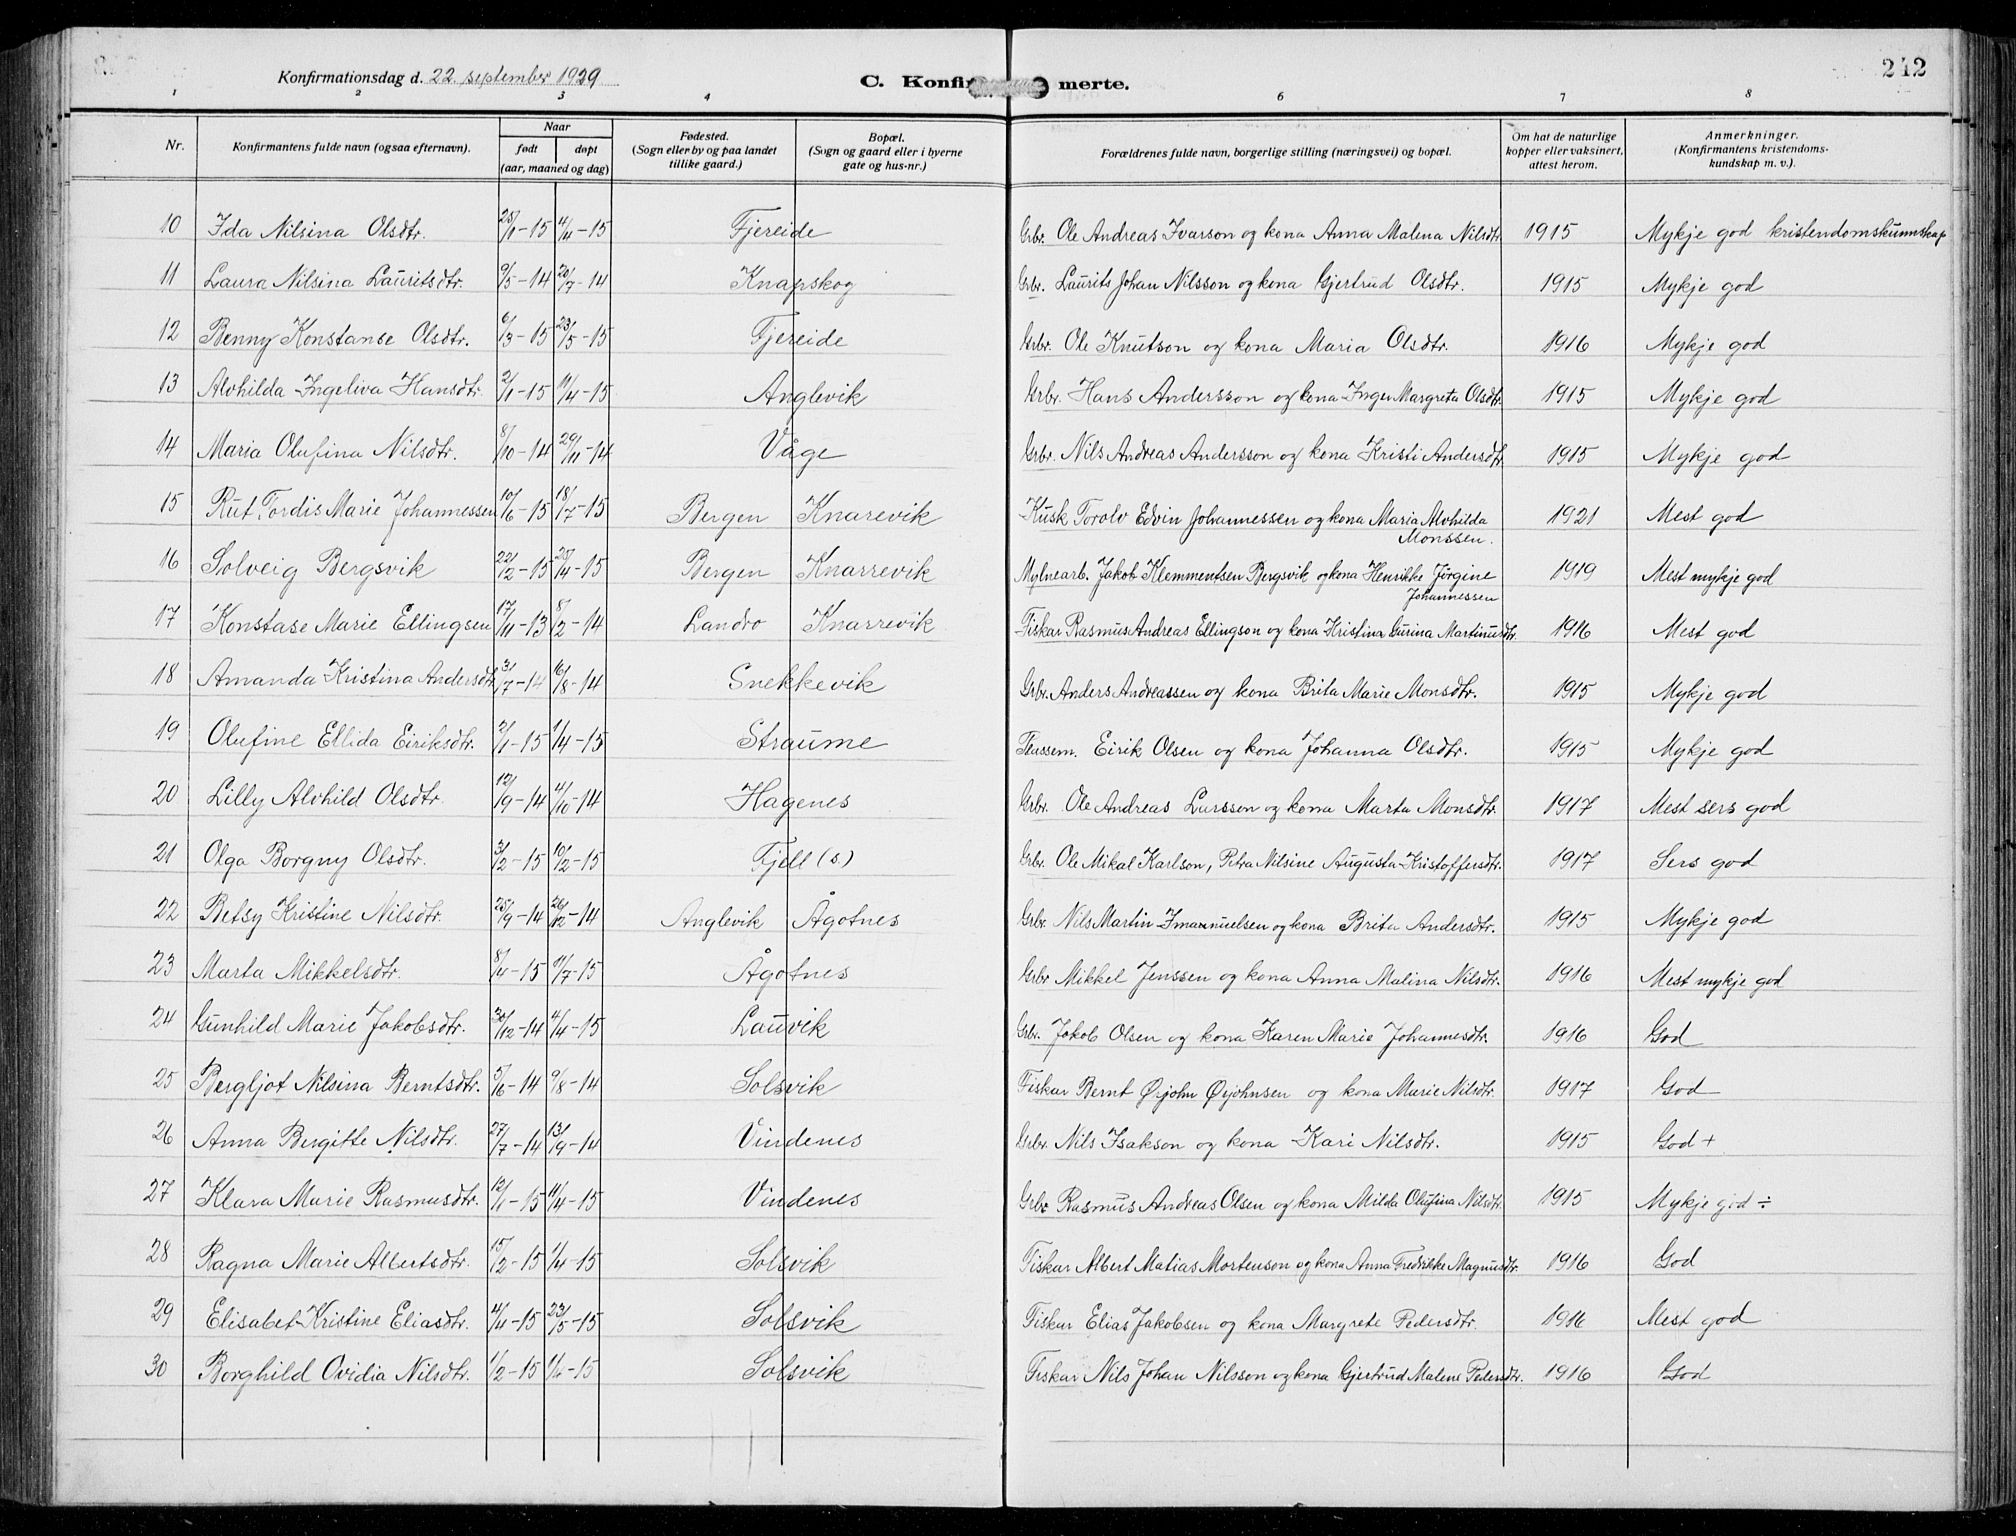 242
Konfirmationsdag d. 22. september 1929
C. Konfir merte.
1 2 3 4 6 7 8
Nr. Konfirmantens fulde navn (ogsaa efternavn). Naar født døpt (aar, maaned og dag) Fødested. (Sogn eller by og paa landet tillike gaard.) Bopæl. (Sogn og gaard eller i byerne gate og hus-nr.) Forældrenes fulde navn, borgerlige stilling (næringsvei) og bopæl. Om hat de naturlige kopper eller vaksinert, attest herom. Anmerkninger. (Konfirmantens kristendomskundskap m. v.).
10 Ida Nilsina Olsdtr. 25/1-15 4/4-15 Fjereide Grbr. Ole Andreas Ivarson og kona Anna Malena Nilsdtr 1915 Mykje god kristendomskunnskap
11 Laura Nilsina Lauritsdtr. 9/5-14 20/7-14 Knapskog Grbr. Laurits Johan Nilsson og kona Gjertrud Olsdtr. 1915 Mykje god
12 Benny Konstanse Olsdtr. 6/3-15 23/5-15 Fjereide Grbr. Ole Knutson og kona Maria Olsdtr. 1916 Mykje god
13 Alvhilda Ingeliva Hansdtr. 2/1-15 11/4-15 Anglevik Grbr. Hans Andersson og kona Inger Margreta Olsdtr. 1915 Mykje god
14 Maria Olufina Nilsdtr. 8/10-14 29/11-14 Våge Grbr. Nils Andreas Andersson og kona Kristi Andersdtr. 1915 Mykje god
15 Rut Tordis Marie Johannessen 10/6-15 18/7-15 Bergen Knarevik Kusk Torolv Edvin Johannessen og kona Maria Alvhilda Monssen. 1921 Mest god
16 Solveig Bergsvik 22/2-15 25/4-15 Bergen Knarrevik Mylnearb. Jakob Klemmentsen Bergsvik og kona Henrikke Jørgine Johannessen 1919 Mest mykje god
17 Konstase Marie Ellingsen 17/11-13 8/2-14 Landro Knarrevik Fiskar Rasmus Andreas Ellingson og kona Kristina Gurina Martinusdtr. 1916 Mest god
18 Amanda Kristina Andersdtr. 3/7-14 16/8-14 Snekkevik Grbr. Anders Andreassen og kona Brita Marie Monsdtr. 1915 Mykje god
19 Olufine Ellida Eiriksdtr. 2/1-15 1/4-15 Straume Eirik Olsen og kona Johanna Olsdtr. 1915 Mykje god
20 Lilly Alvhild Olsdtr. 12/9-14 4/10-14 Hagenes Grbr. Ole Andreas Larsson og kona Marta Monsdtr. 1917 Mest sers god
21 Olga Borgny Olsdtr. 3/2-15 10/2-15 Fjell (s) Grbr. Ole Mikal Karlson, Petra Nilsine Augusta Kristoffersdtr. 1917 Sers god
22 Betsy Kristine Nilsdtr. 25/9-14 26/12-14 Anglevik Ågotnes Grbr. Nils Martin Imanuelsen og kona Brita Andersdtr. 1915 Mykje god
23 Marta Mikkelsdtr. 8/4-15 11/7-15 Ågotnes Grbr. Mikkel Jenssen og kona Anna Malina Nilsdtr. 1916 Mest mykje god
24 Gunhild Marie Jakobsdtr. 30/12-14 4/4-15 Lauvik Grbr. Jakob Olsen og kona Karen Marie Johannesdtr. 1916 God
25 Bergljot Nilsina Berntsdtr. 5/6-14 9/8-14 Solsvik Fiskar Bernt Ørjohn Ørjohnsen og kona Marie Nilsdtr. 1917 God
26 Anna Bergitte Nilsdtr. 27/7-14 13/9-14 Vindenes Grbr. Nils Isakson og kona Kari Nilsdtr. 1915 God +
27 Klara Marie Rasmusdtr. 12/1-15 11/4-15 Vindenes Grbr. Rasmus Andreas Olsen og kona Milda Olufina Nilsdtr. 1915 Mykje god ÷
28 Ragna Marie Albertsdtr. 15/2-15 1/4-15 Solsvik Fiskar Albert Matias Mortenson og kona Anna Fredrikke Magnusdtr. 1916 God
29 Elisabet Kristine Eliasdtr. 4/4-15 23/5-15 Solsvik Fiskar Elias Jakobsen og kona Margrete Pedersdtr. 1916 Mest god
30 Borghild Ovidia Nilsdtr. 1/2-15 1/4-15 Solsvik Fiskar Nils Johan Nilsson og kona Gjertrud Malene Pedersdtr. 1916 God